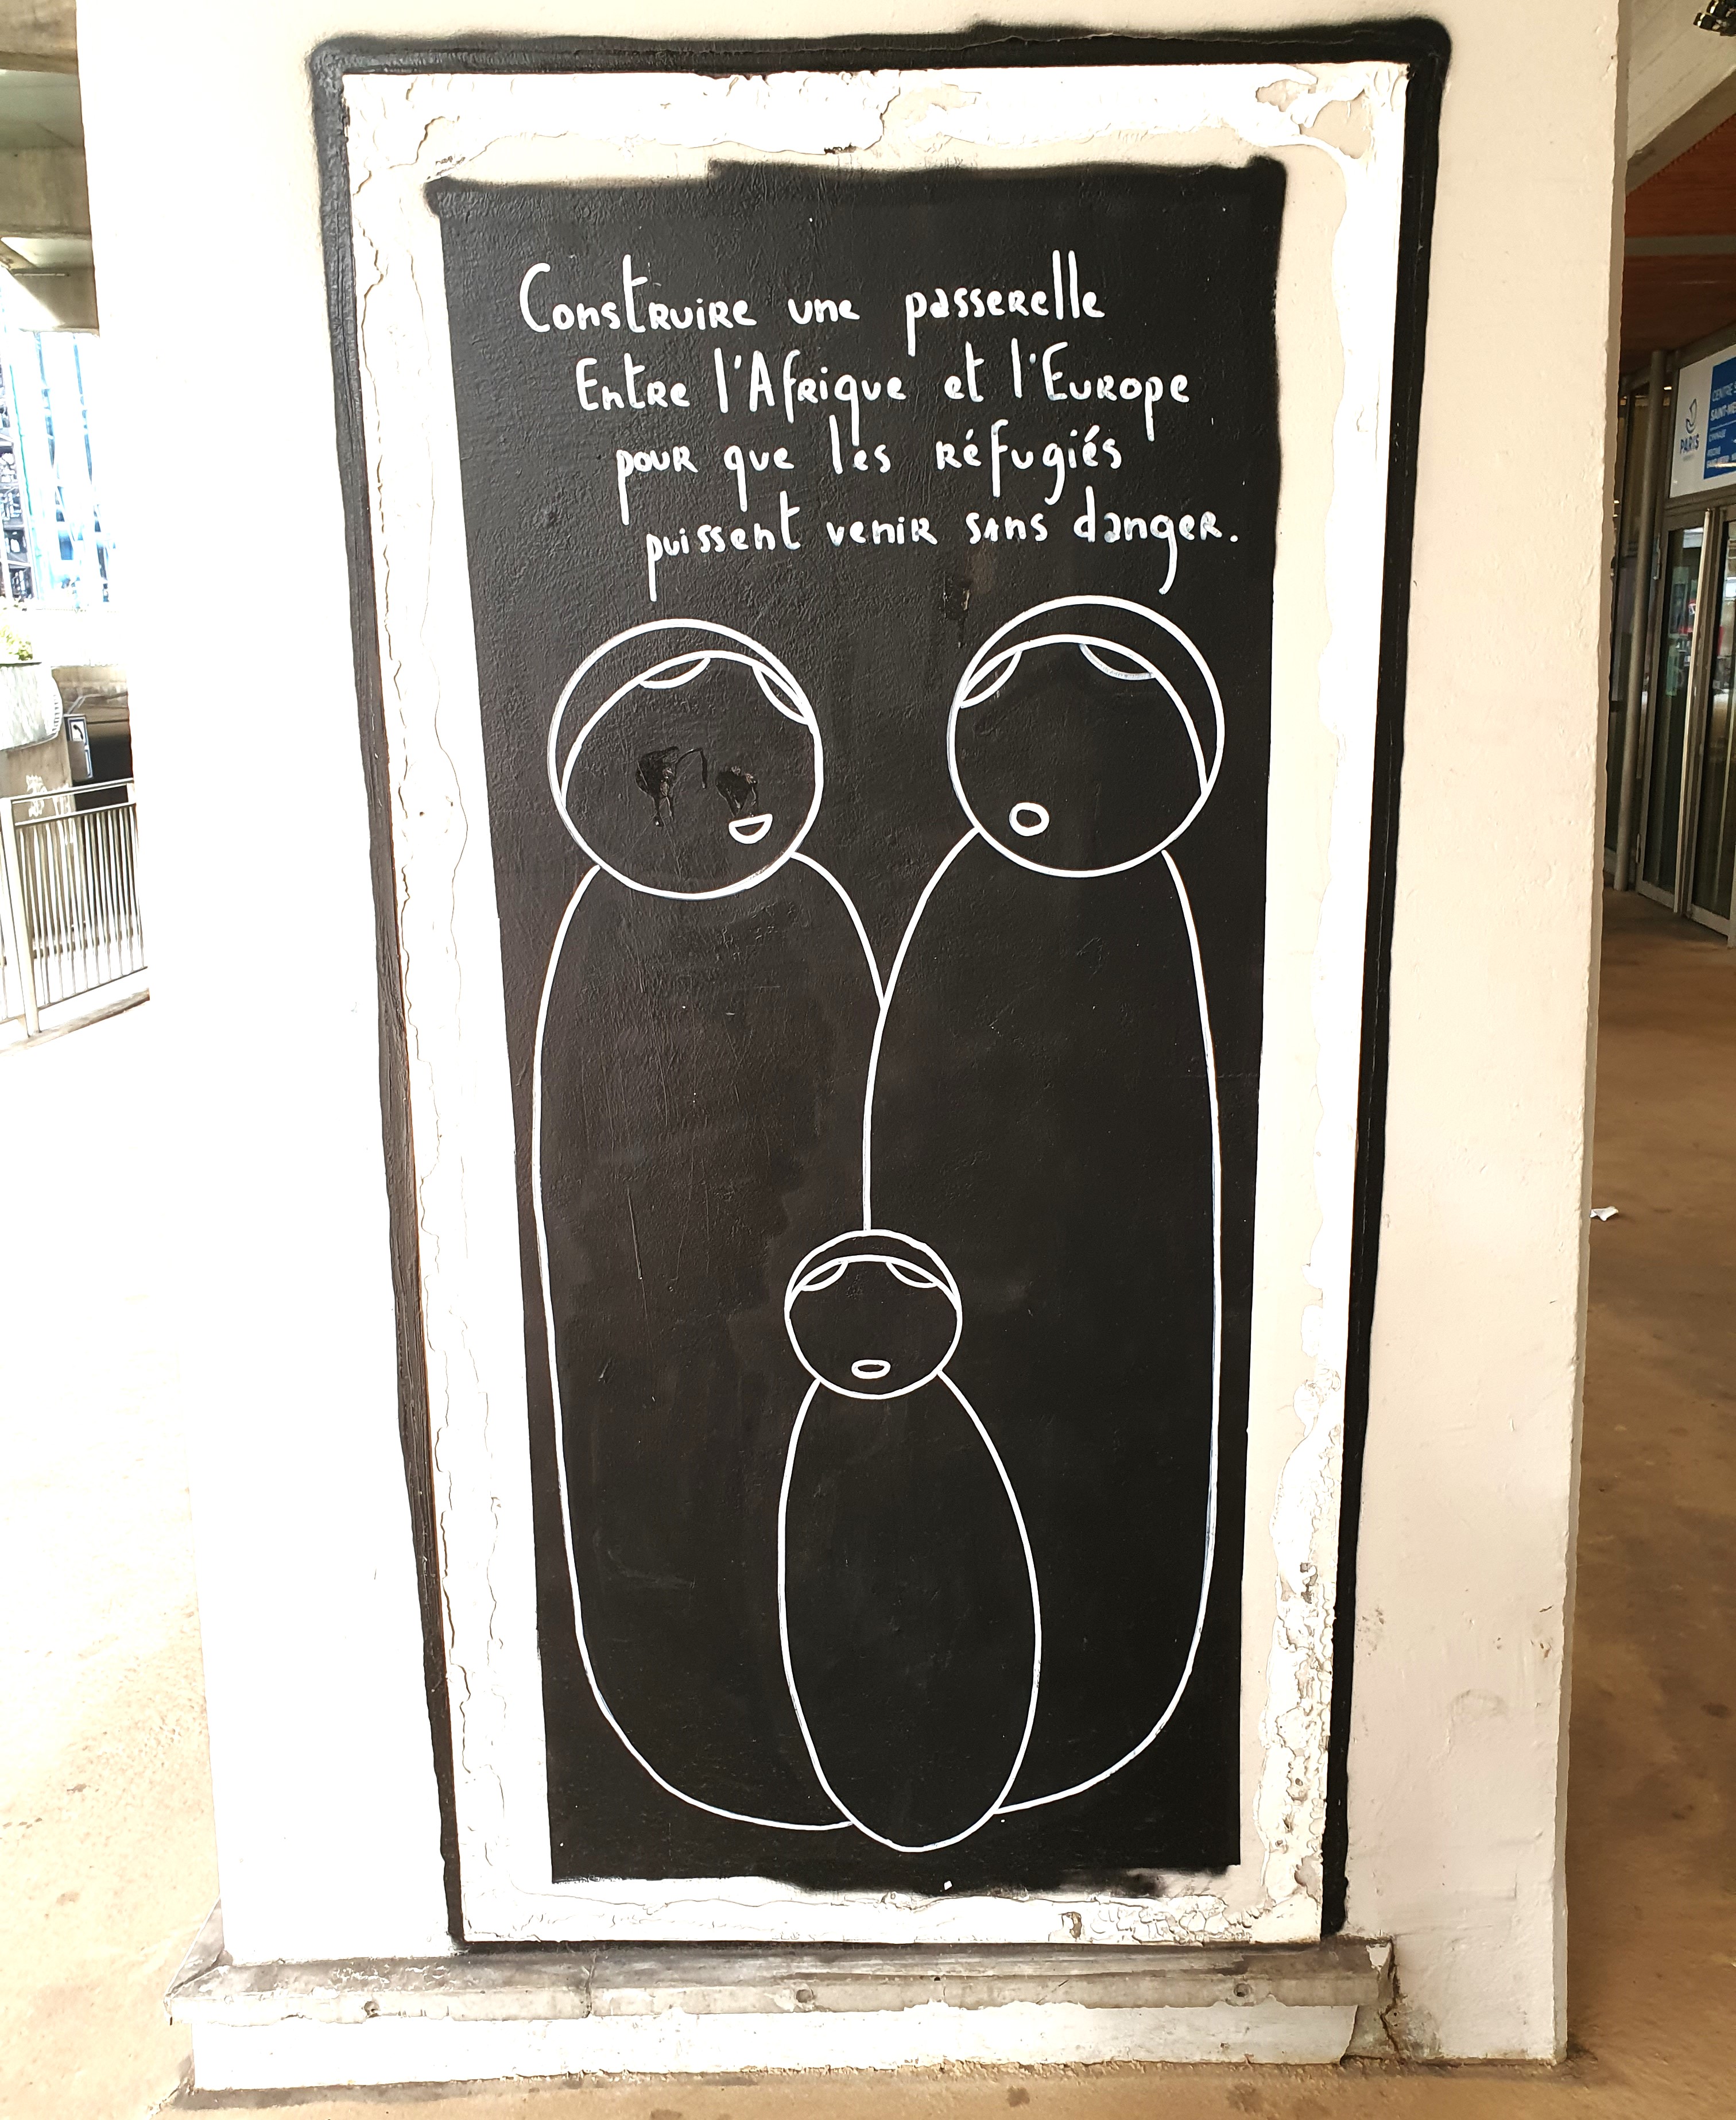 Construire une passerelle
Entre l'Afrique et l'Europe
pour que les réfugiés
puissent venir sans danger.
PARIS
CENTRE